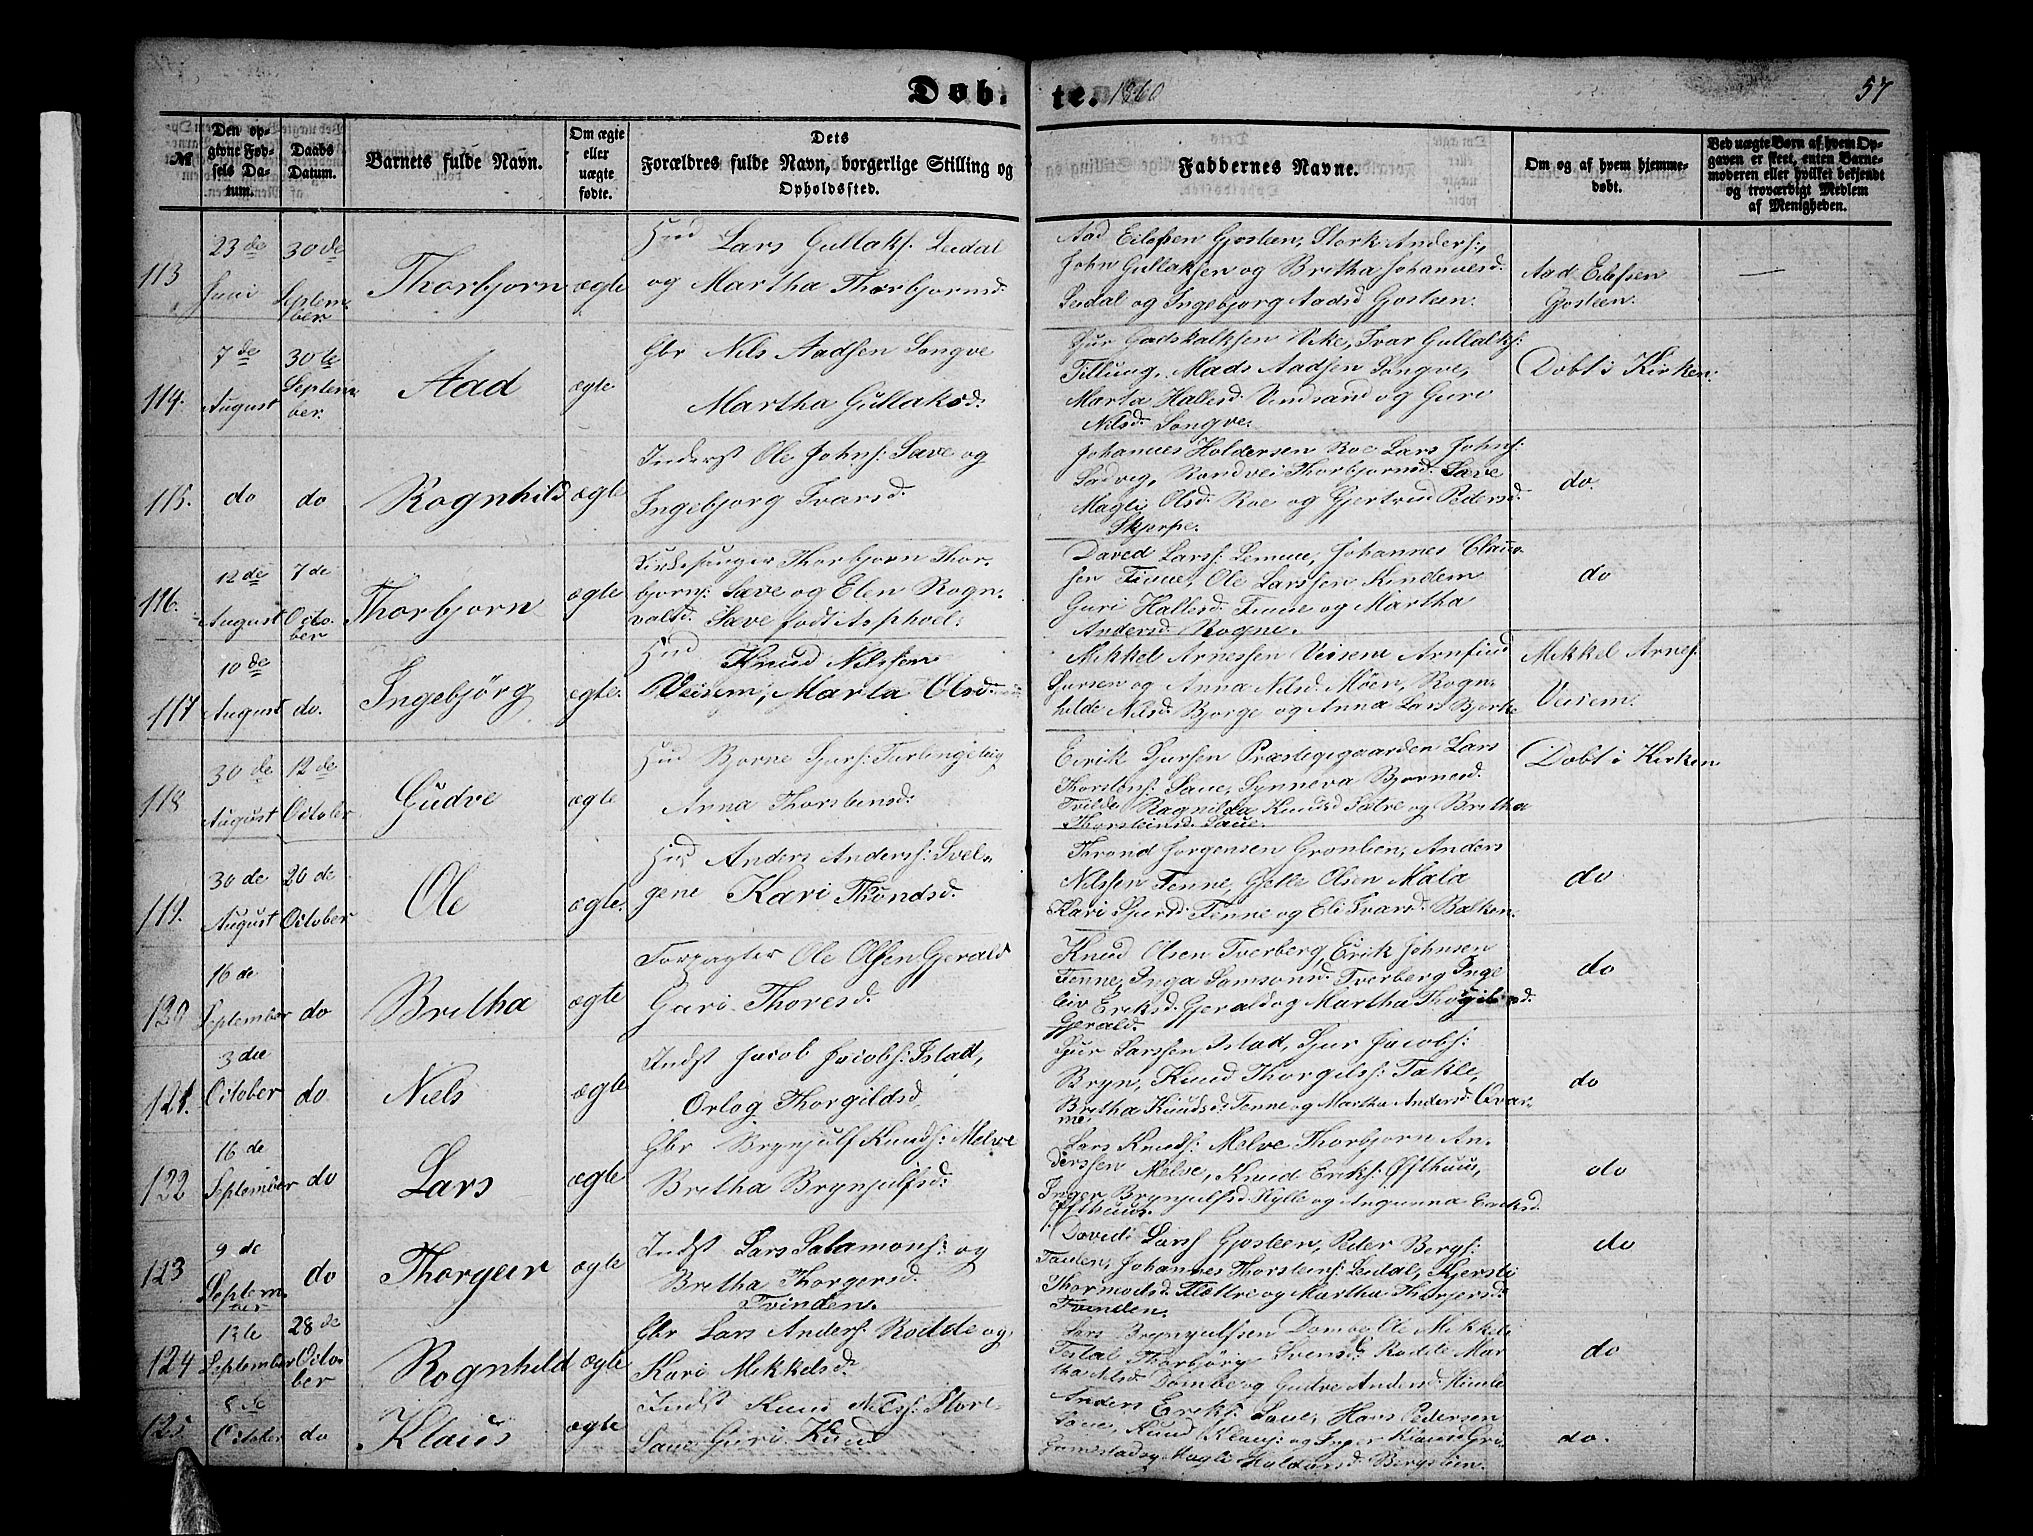 Døb- te. 1860 57
№
Den opgivne Fødsels Datum.
Daabs Datum.
Barnets fulde Navn.
Om ægte eller uægte fødte.
Dets Forældres fulde Navn, borgerlige Stilling og Opholdssted.
Faddernes Navne.
Om og af hvem hjemmedøbt.
Ved uægte Børn af hvem Opgaven er skeet, enten Barnemoderen eller hvilket bekjendt og troværdigt Medlem af Menigheden.
113 23de Juni 30de September Thorbjørn ægte
Lars Gullaks: Leidal
og Martha Thorbjørnsd.
Aad Eilefsen Gjosteen, Stork Anders:,
John Gullaksen og Britha Johannesd.
Leidal og Ingebjørg Aadsd Gjosteen.
Aad Eilefsen
Gjosteen.
114. 7de August 30te September Aad ægte
Gbr Nils Aadsen Songve
Martha Gullaksd.
Sjur Gadskalksen Vike, Ivar Gullaks:
Tillung, Mads Aadsen Songve,
Marta Hallesd. Vindsand og Guri
Nilsd. Songve.
Døbt i Kirken.
115. do do Rognhild ægte
Inderst Ole Johns: Sæve og
Ingebjørg Ivarsd.
Johannes Holdersen Roe Lars Johns:
Sadveg, Randvei Thorbjørnsd. Sæve
Magli Olsd. Roe og Gjertrud Pedersd.
Skjerpe.
do.
116. 12de August 7de October Thorbjørn ægte
Kirkesanger Thorbjørn Thor-
bjørns: Sæve og Elen Rogn-
valtd. Sæve født Asphoel.
David Lars: Lemme, Johannes Claus-
sen Finne, Ole Larssen Kindem
Guri Hallesd. Finne og Martha
Andersd. Rogne.
do
117 10de August do. Ingebjørg ægte.
Knud Nilssen
Veisem, Marta Olsd.
Mikkel Arnessen Veisem Arnfind
Sjursen og Anna Nilsd. Møen, Rogn-
hilde Nilsd. Bjørge og Anna Lars Bjørke
Mikkel Arnes:
Veisem.
118 30de August 12de October Gudve ægte
Bjørne Sjurs:
Anna Thorstensd.
Eirik Sjursen Præstegegaarden Lars
Thorstens: Saue, Synneva Bjørnesd.
Tvilde Ragnilda Knudsd Sætve og Britha
Thorsteinsd. Saue.
Døbt i Kirken
119. 30de August 20de October Ole ægte.
Anders Anders: Svel-
gene Kari Throndsd.
Thrond Jørgensen Grønlien, Anders
Nilssen Tenne, Gjelle Olsen Mala
Kari Sjursd. Tenne og Eli Ivarsd. Bælken.
do
120 16de September do Britha ægte
Forpagter Ole Olssen Gjerald
Guri Thoresd.
Knud Olsen Tverberg, Eirik Johnsen
Tenne, Inga Samsonsd. Tverberg Inge
leiv Eriksd. Gjerald og Martha
Gjerald.
do
121. 3die October do Niels ægte
Indst Jacob Jacobs: Istad,
Orlog Thorgildsd.
Sjur Larssen Istad, Sjur Jacobs:
Bryn, Knud Thorgils: Takle,
Britha Knudsd. Tenne og Martha Andersd.
do
122 16de September do Lars ægte
Gbr Brynjulf Knuds: Melve
Britha Brynjulfsd.
Lars Knuds: Melve Thorbjørn An-
derssen Melve, Knud Eriks: Øfthuus,
Inger Brynjulfsd. Kylle og Ingunna Eriksd.
Øfthuus.
do
123 9de September do Thorgeir ægte
Indst Lars Salamons: og
Britha Thorgersd.
Tvinden.
David Lars: Gjosteen, Peder Bergs:
Johannes Thorstens: Leidal, Kjersti
Thormodsd. og Martha Thorgersd.
Tvinden.
do
124 13te September 28de October Rognhild ægte
Gbr Lars Anders: Rodde og
Kari Mikkelsd.
Lars Brynjulfsen Dømbe, Ole Mikkels
Thorbjørg Svensd. Rodde Mar-
tha Nilsd. Dømbe og Gudve Andersd. Himle
do
125 8de October do Klaus ægte
Indst Knud Nils: Store-
Saue Guri Knud
Anders Eriks: Saue, Hans Pedersen
Saue, Knud Klaus: og Inger Klausd
og Magli Haldorsd. Bergsteen.
do.